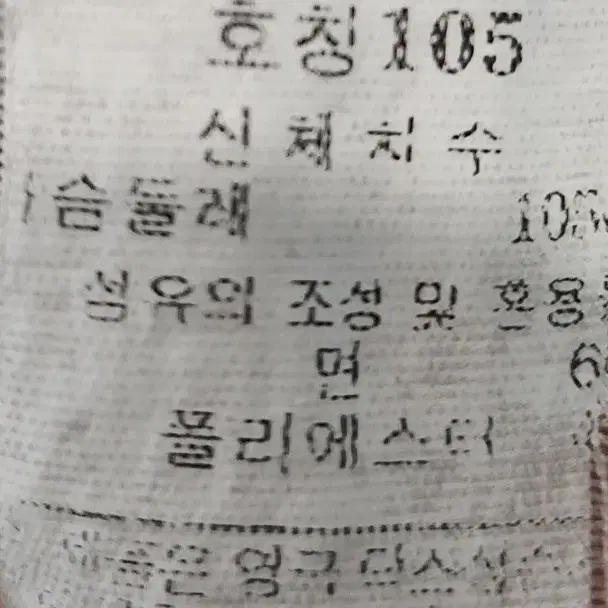 호칭 105
신체치수
가슴둘레 105
섬유의 조성 및 혼용
면 6
폴리에스터